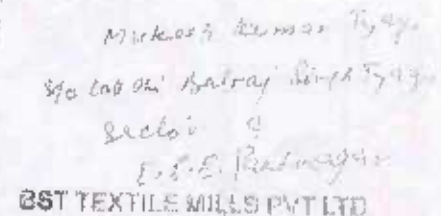 Mukesh Kumar Tyagi
S/o Late Shri Balraj Singh Tyagi
Sector 9
Pantnagar
BST TEXTILE MILLS PVT LTD